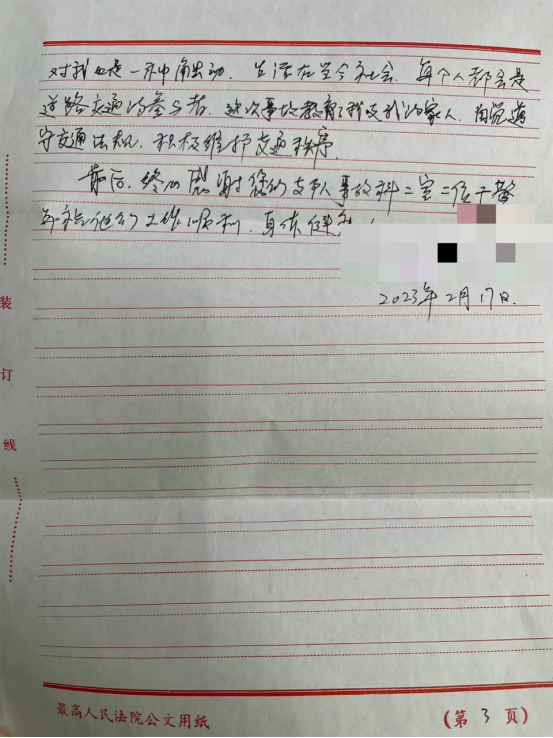 对我也是一种触动。生活在当今社会，每个人都会是
道路交通的参与者，这次事故教育了我及我的家人，自觉遵
守交通法规，积极维护交通秩序。
最后，衷心感谢 支队事故科二室二位干警
并祝他们工作顺利，身体健
2023年2月17日.
装
订
线
最高人民法院公文用纸
(第 3 页)